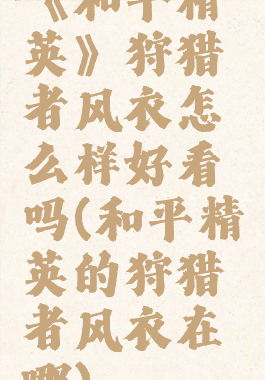 《和平精
英》狩猎
者风衣怎
么样好看
吗(和平精
英的狩猎
者风衣在
哪)